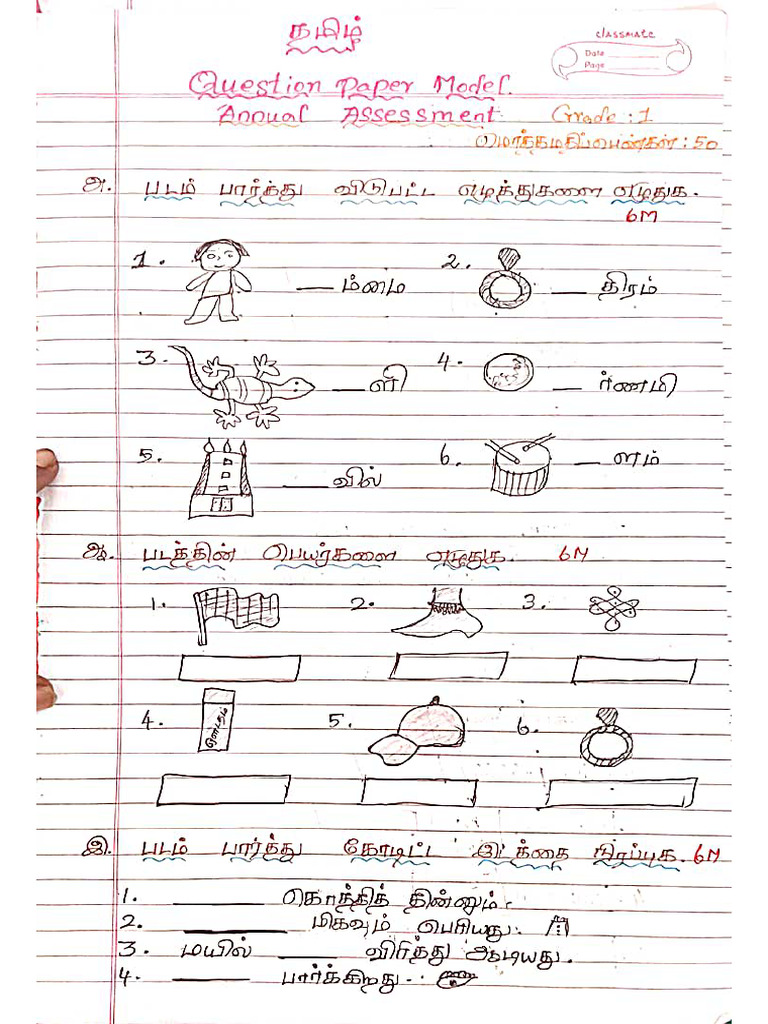 தமிழ்
classmate
Date
Page
Question Paper Model.
Annual Assessment Grade : 1
மொத்தமதிப்பெண்கள் : 50
அ. படம் பார்த்து விடுபட்ட எழுத்துகளை எழுதுக.
6M
1. ___ ம்மை 2. ___ திரம்
3. ___ளி 4. ___ ர்ணமி
5. ___ வில் 6. ___ ளம்
ஆ. படத்தின் பெயர்களை எழுதுக. 6M
1. 2. 3.
4. 5. 6.
இ. படம் பார்த்து கோடிட்ட இடத்தை நிரப்புக. 6M
1. ______ கொத்தித் தின்னும்.
2. ______ மிகவும் பெரியது.
3. மயில் ______ விரித்து ஆடியது.
4. ______ பார்க்கிறது.